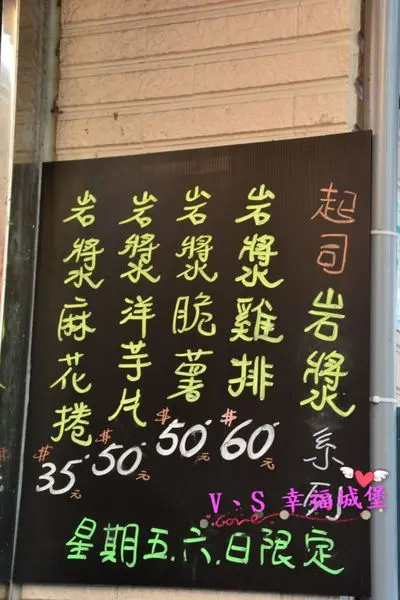 起司岩漿系列
岩漿雞排 #60元
岩漿脆薯 #50元
岩漿洋芋片 #50元
岩漿麻花捲 #35元
星期五.六.日限定
V、S 幸福城堡
Love